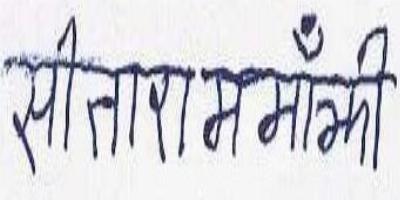 सीताराम माँझी